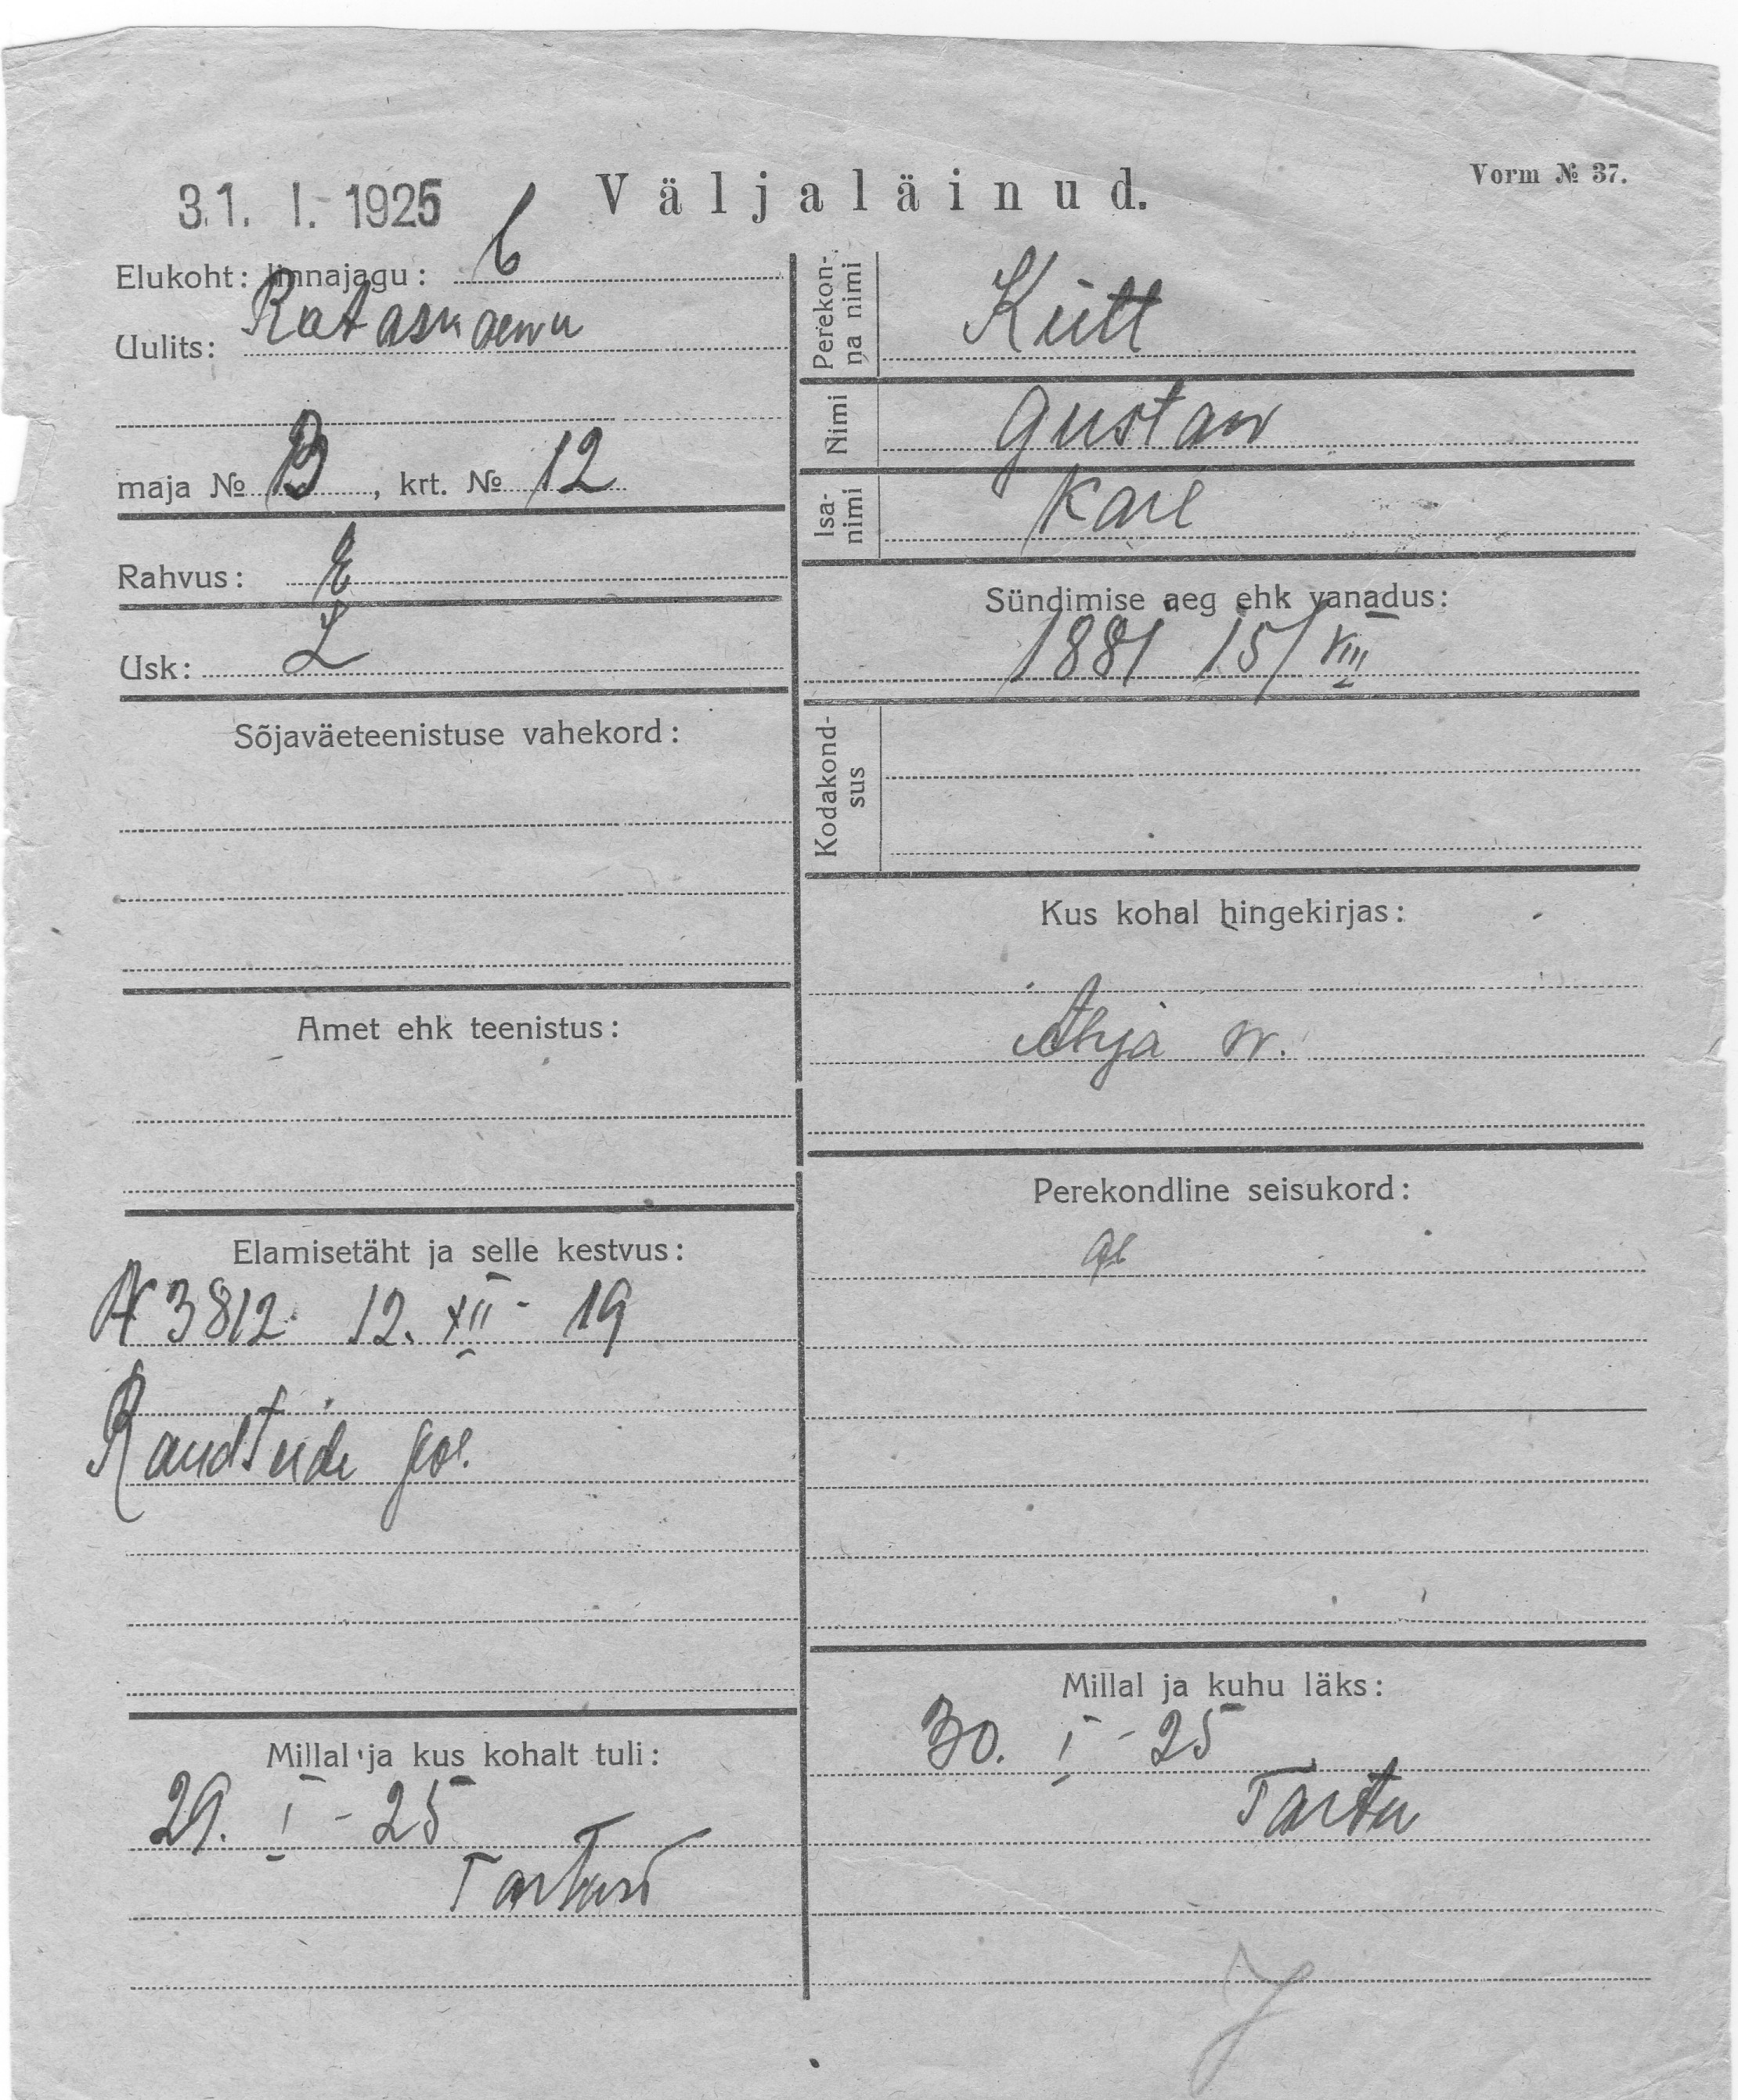 Vorm № 37.
31. I. 1925
Väljaläinud.
Elukoht: linnajagu: 6
Uulits: Rataskaewu
maja № 13, krt. № 12
Rahvus: E
Usk: L
Sõjaväeteenistuse vahekord:
Amet ehk teenistus:
Elamisetäht ja selle kestvus:
N 3812 12. XII - 19
Raudteide pol.
Millal ja kus kohalt tuli:
29. I - 25
Tartust
Perekonna nimi
Kütt
Nimi
Gustaw
Isanimi
Karl
Sündimise aeg ehk vanadus:
1881 15/VIII
Kodakondsus
Kus kohal hingekirjas:
Ahja w.
Perekondline seisukord:
Millal ja kuhu läks:
30. I - 25
Tartu